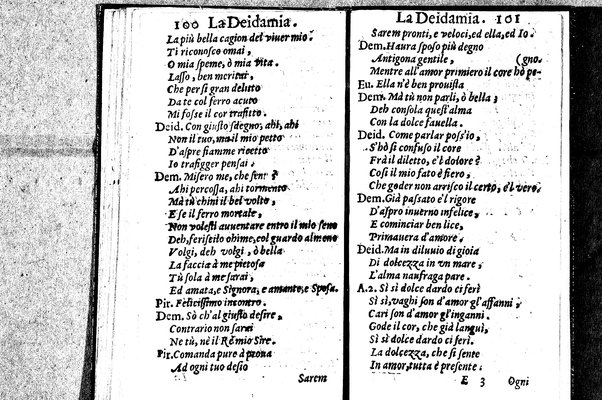 100 La Deidamia.
La più bella cagion del viuer mio.
Ti riconosco omai,
O mia speme, ò mia vita.
Lasso, ben meritai,
Che per sì gran delitto
Da te col ferro acuto
Mi fosse il cor trafitto.
Deid. Con giusto sdegno, ahi, ahi
Non il tuo, ma il mio petto
D'aspre fiamme ricetto
Io trafigger pensai.
Dem. Misero me, che sent?
Ahi percossa, ahi tormento
Mà tù chini il bel volto,
E se il ferro mortale,
Non volesti auuentare entro il mio seno
Deh, feriseilo ohime, col guardo almeno
Volgi, deh volgi, ò bella
La faccia à me pietosa
Tù sola à me sarai,
Ed amata, e Signora, e amante, e Sposa.
Pir. Felicissimo incontro.
Dem. Sò ch'al giusto desire,
Contrario non sarei
Ne tù, nè il Rè mio Sire.
Pir. Comanda pure à proua
Ad ogni tuo desio
Sarem
La Deidamia. 101
Sarem pronti, e veloci, ed ella, ed Io.
Dem. Haura sposo più degno
Antigona gentile, (gno.
Mentre all'amor primiero il core hò pe-
Eu. Ella n'è ben prouista
Dem. Mà tù non parli, ò bella;
Deh consola quest'alma
Con la dolce fauella.
Deid. Come parlar poss'io,
S'hò sì confuso il core
Frà il diletto, e'l dolore?
Così il mio fato è fiero,
Che goder non arrisco il certo, e'l vero.
Dem. Già passato è'l rigore
D'aspro inuerno infelice,
E cominciar ben lice,
Primauera d'amore.
Deid. Ma in diluuio di gioia
Di dolcezza in vn mare,
L'alma naufraga pare.
A.2. Sì sì dolce dardo ci ferì
Sì sì, vaghi son d'amor gl'affanni,
Cari son d'amor gl'inganni.
Gode il cor, che già languì,
Sì sì dolce dardo ci ferì.
La dolcezza, che si sente
In amor, tutta è presente:
E 3 Ogni